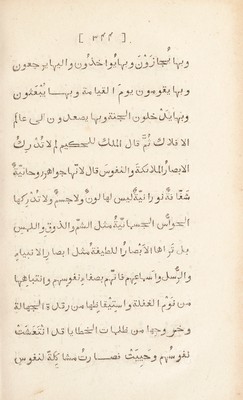 [ ٣٤٤ ]
وبها يُجازَوْنَ وبها يواخذون واليها يرجعون
وبها يقومون يومَ القيامة وبها يُبْعَثون
وبها يَدْخلون الجنة وبها يصعدون الى عالم
الافلاك ثُمَّ قال الملك للحكيم لم لا تُدْرِكُ
الابصارُ الملائكةَ والنفوسَ قال لانها جواهرٌ روحانيّةٌ
شفّافةٌ نورانيّةٌ ليس لها لونٌ ولا جسمٌ ولا تُدْرِكها
الحواسُّ الجسمانيّةُ مثل الشمّ والذوق واللمس
بل تراها الابصارُ اللطيفةُ مثل ابصار الانبياء
والرُّسل واسماعِهم فانّهم بصفاء نفوسهم وانتباهها
من نَوْم الغفلة واستيقاظها من رقدة الجهالة
وخروجها من ظلمات الخطايا قد انتعشتْ
نفوسُهم وحَيِيَتْ فصارت مشاكِلةً لنفوس